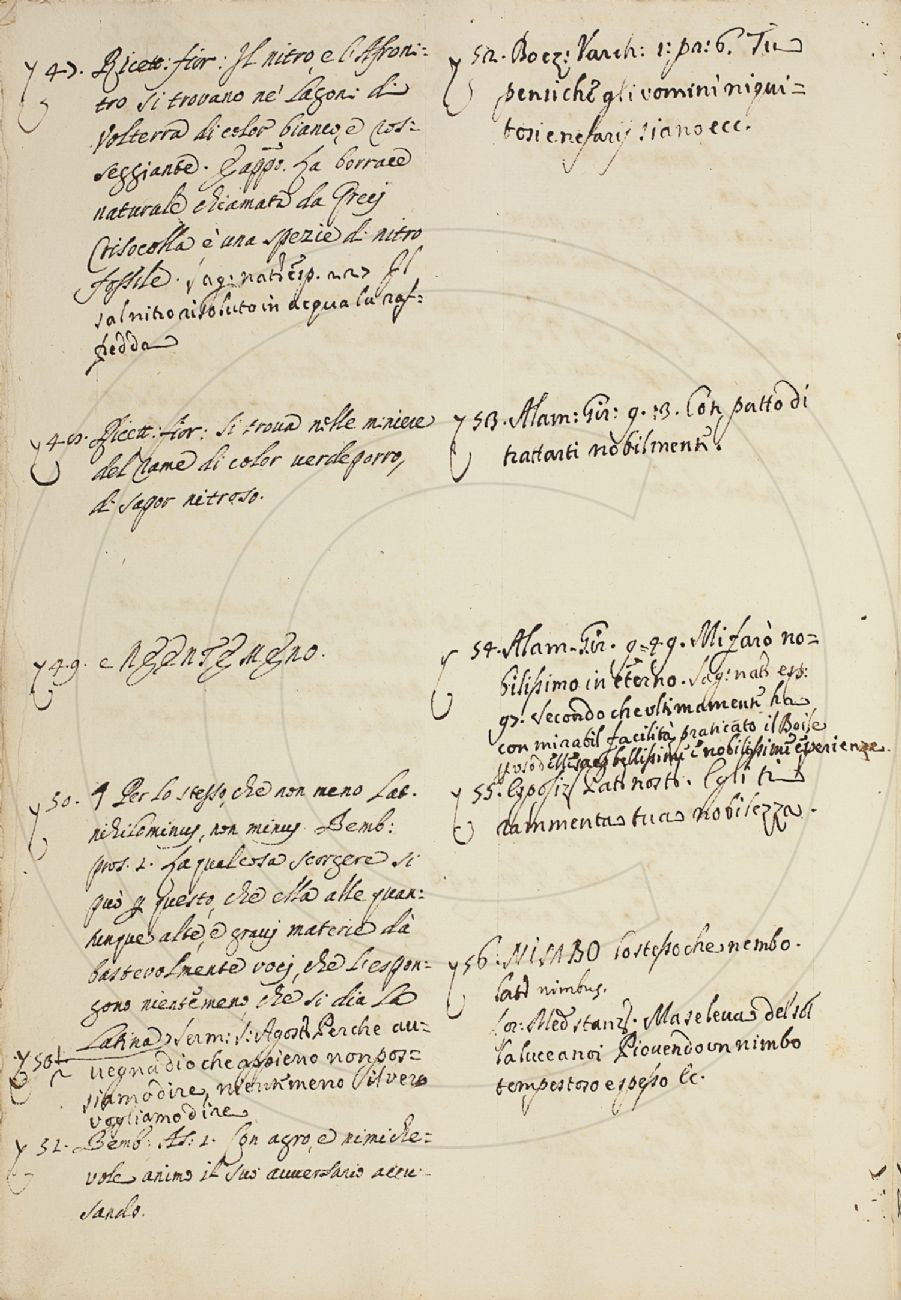 47. Ricett: fior: Il nitro, e l'Afroni=
tro si trovano ne' Lagoni di
Volterra di color bianco, e ros=
seggiante. E appo. La borrace
naturale chiamata da Greci
Crisocolla è una spezie di nitro
fossile. Sag: nat: esp. 227 Il
salnitro risoluto in acqua la raf=
fredda
48. Ricett: fior: Si trova nelle miniere
del Rame di color verdeporro,
di sapor nitroso.
49. e NEENTEMENO.
50. ¶ Per lo stesso, che non meno Lat.
nihilominus, non minus. Bemb:
pros. 1. La qual cosa scorgere si
può p questo, che ella alle quan=
tunque alte, e gravi materie dà
bastevolmente voci, che l'espon=
gono nientemeno, che si dia la
Latina Serm: S: Agost: Perche av=
50½
vegnadioche appieno non pos=
siamo dire, nientimeno il vero
vogliamo dire
51. Bemb: As: 1. Con agro, e nimiche=
vole animo il suo avversario accu=
sando.
52. Boez: Varch: 1: pr: 6. Tu
pensi che gli uomini niqui=
tosi e nefarij siano ecc.
53. Alam: Gir: 9. 13. Con patto di
trattarti nobilmente.
54. Alam. Gir. 9=49. Mi farò no=
bilissimo in eterno. Sag: nat: esp:
97. Secondo che ultimamente ha
con mirabil facilità praticato il Boile
bellissime e nobilissime esperienze.
55. Esposiz: Pat: nost: Egli ti
rammenta tua nobilezza.
56. NIMBO lo stesso che nembo.
Lat: nimbus.
Lor: Med: stanz: Ma se leva del sol
la luce a noi Piovendo un nimbo
tempestoso e spesso Ec.